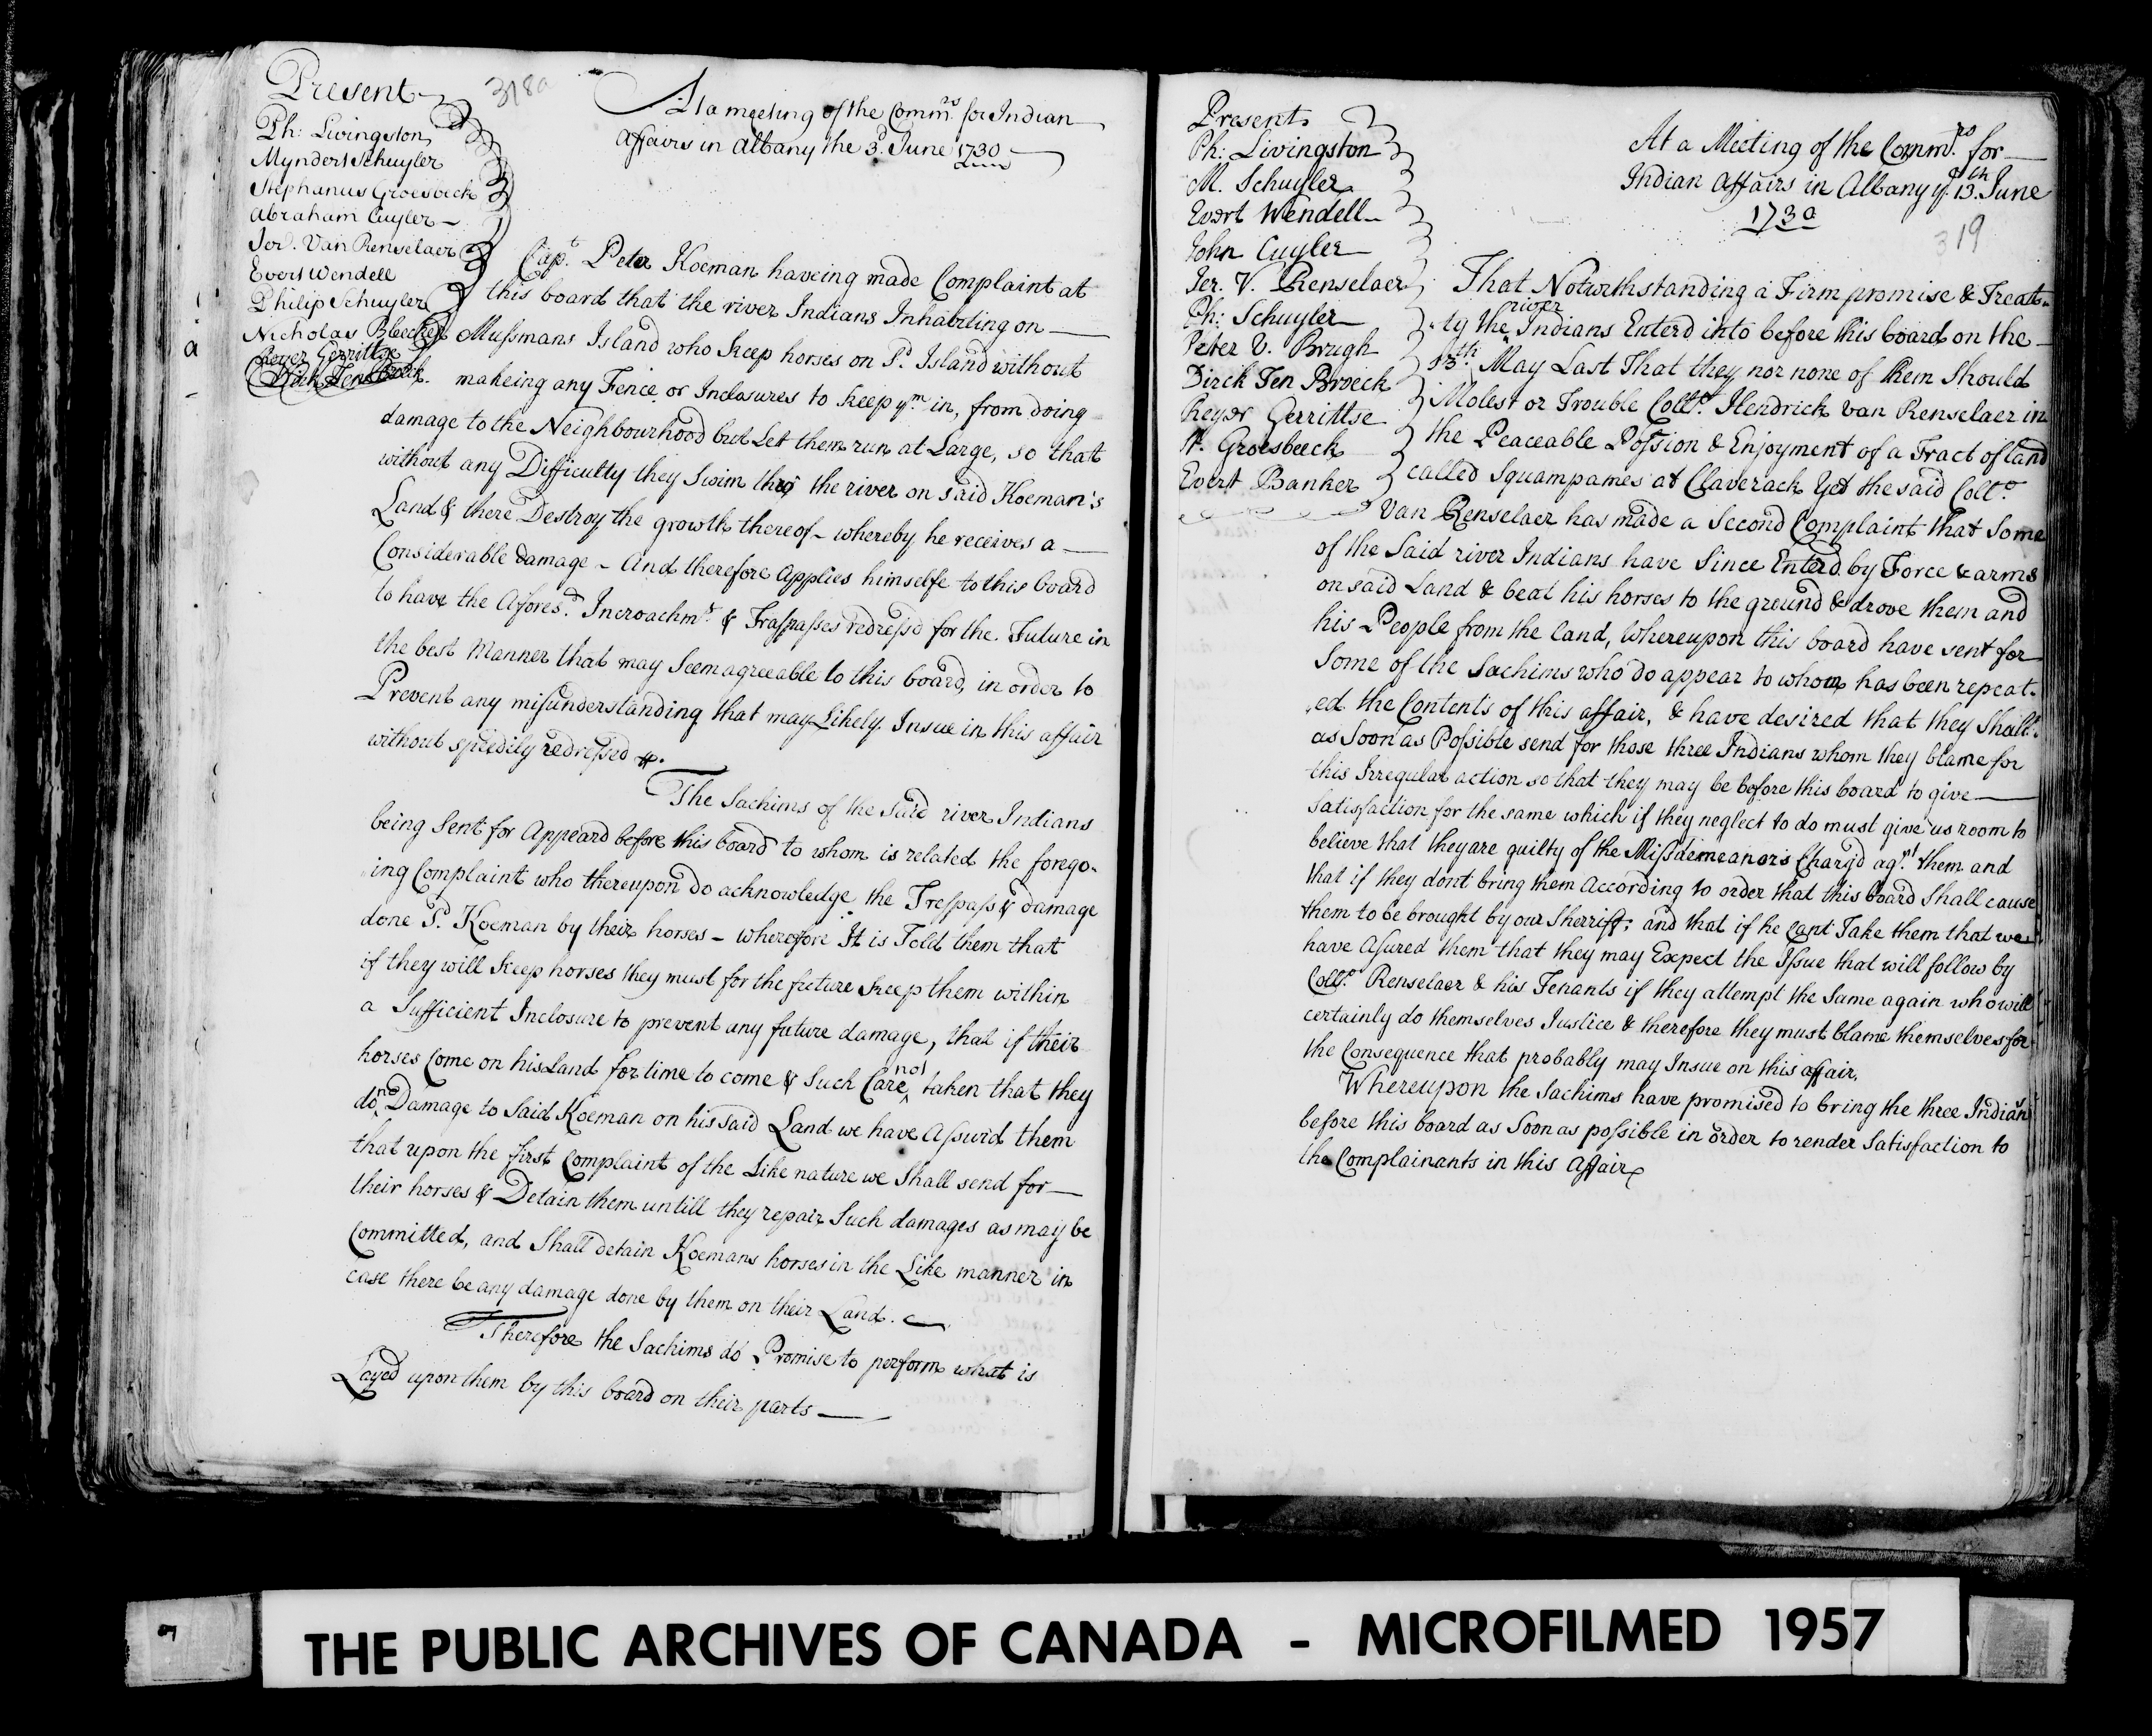 318a
Present
Ph: Livingston
Myndert Schuyler
Stephanus Groesbeck
Abraham Cuyler
Jer. Van Renselaer
Evert Wendell
Philip Schuyler
Nicholas Bleecker
Reyer Gerritse
At a meeting of the Comm.rs for Indian
Affairs in Albany the 3.d June 1730
Cap.t Peter Koeman haveing made Complaint at
this board that the river Indians Inhabiting on
Mussmans Island who keep horses on s.d Island without
makeing any Fence or Inclosures to keep y.m in, from doing
damage to the Neighbourhood but Let them run at Large, so that
without any Difficulty they Swim thro the river on said Koeman's
Land & there Destroy the growth thereof - whereby he receives a
Considerable damage - And therefore Applies himselfe to this board
to have the Afores.d Incroachm.ts & Traspasses redressd for the Future in
the best Manner that may Seem agreeable to this board, in order to
Prevent any misunderstanding that may Likely Insue in this affair
without speedily redressed
The Sachims of the said river Indians
being Sent for Appeard before this board to whom is related the forego-
ing Complaint who thereupon do acknowledge the Trespass & damage
done s.d Koeman by their horses - wherefore It is Told them that
if they will keep horses they must for the future keep them within
a Sufficient Inclosure to prevent any future damage, that if their
horses Come on his Land for time to come & Such Care not taken that they
do no Damage to Said Koeman on his said Land we have Assurd them
that upon the first Complaint of the Like nature we Shall send for
their horses & Detain them untill they repair Such damages as may be
Committed, and Shall detain Koemans horses in the Like manner in
case there be any damage done by them on their Land.
Therefore the Sachims do Promise to perform what is
Layed upon them by this board on their parts
a
Present
Ph: Livingston
M. Schuyler
Evert Wendell
John Cuyler
Jer. V. Renselaer
Ph: Schuyler
Peter V. Brugh
Dirck Ten Broeck
Reyer Gerrittse
Groesbeeck
Evert Banker
At a Meeting of the Comm.rs for
Indian Affairs in Albany y.e 13.th June
1730
319
That Notwithstanding a Firm promise & Treat-
ty the river Indians Enterd into before this board on the
May Last That they nor none of them Should
Molest or Trouble Coll.o Hendrick van Renselaer in
the Peaceable Possion & Enjoyment of a Tract of land
called Squampames at Claverack Yet the said Coll.o
Van Renselaer has made a Second Complaint that Some
of the Said river Indians have Since Enterd by Force & arms
on said Land & beat his horses to the ground & drove them and
his People from the land, Whereupon this board have sent for
Some of the Sachims who do appear to whom has been repeat-
ed the Contents of this affair, & have desired that they Shall
as Soon as Possible send for those three Indians whom they blame for
this Irregular action so that they may be before this board to give
Satisfaction for the same which if they neglect to do must give us room to
believe that they are guilty of the Missdemeanors Chargd ag.st them and
that if they dont bring them According to order that this board Shall cause
them to be brought by our Sherrift: and that if he cant Take them that we
have Asured them that they may Expect the Issue that will follow by
Coll.o Renselaer & his Tenants if they attempt the Same again who will
certainly do themselves Justice & therefore they must blame themselves for
the Consequence that probably may Insue on this affair.
Whereupon the Sachims have promised to bring the three Indians
before this board as Soon as possible in order to render Satisfaction to
the Complainants in this Affair
THE PUBLIC ARCHIVES OF CANADA - MICROFILMED 1957